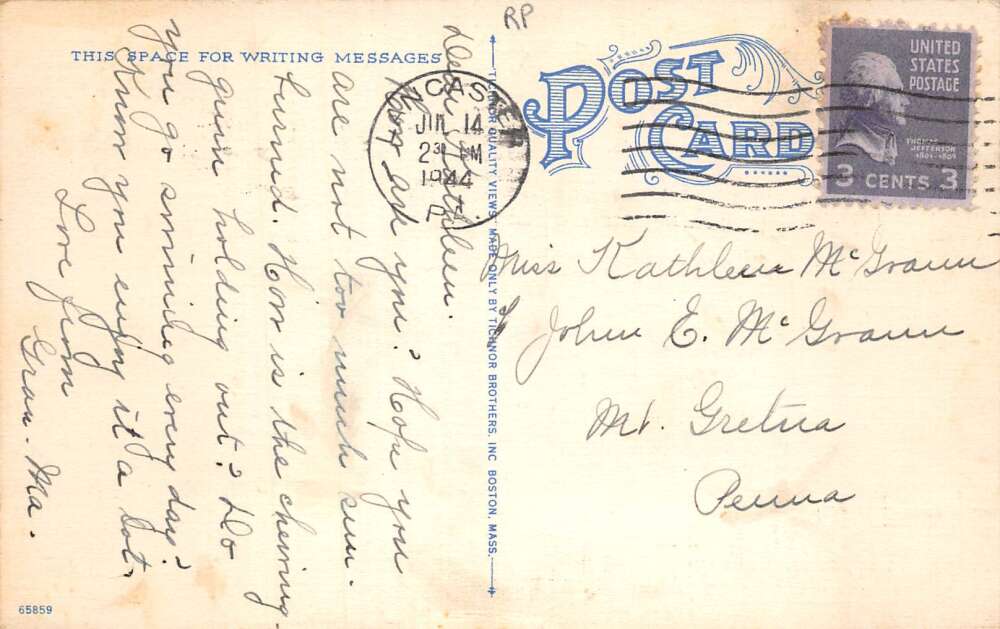 RP
THIS SPACE FOR WRITING MESSAGES
POST CARD
UNITED
STATES
POSTAGE
THOMAS
JEFFERSON
1801-1809
3 CENTS 3
CASTER
14
2 30 PM
1944
Dear Kathleen.
How are you? Hope you
are not too much sun-
burned. How is the chewing
guinn holding out? Do
you go swimming every day?
Know you enjoy it a lot.
Love from
Gran-Ma.
TICHNOR QUALITY VIEWS. MADE ONLY BY TICHNOR BROTHERS, INC BOSTON, MASS.
Miss Kathleen McGrann
℅ John E. McGrann
Mt. Gretna
Penna
65859